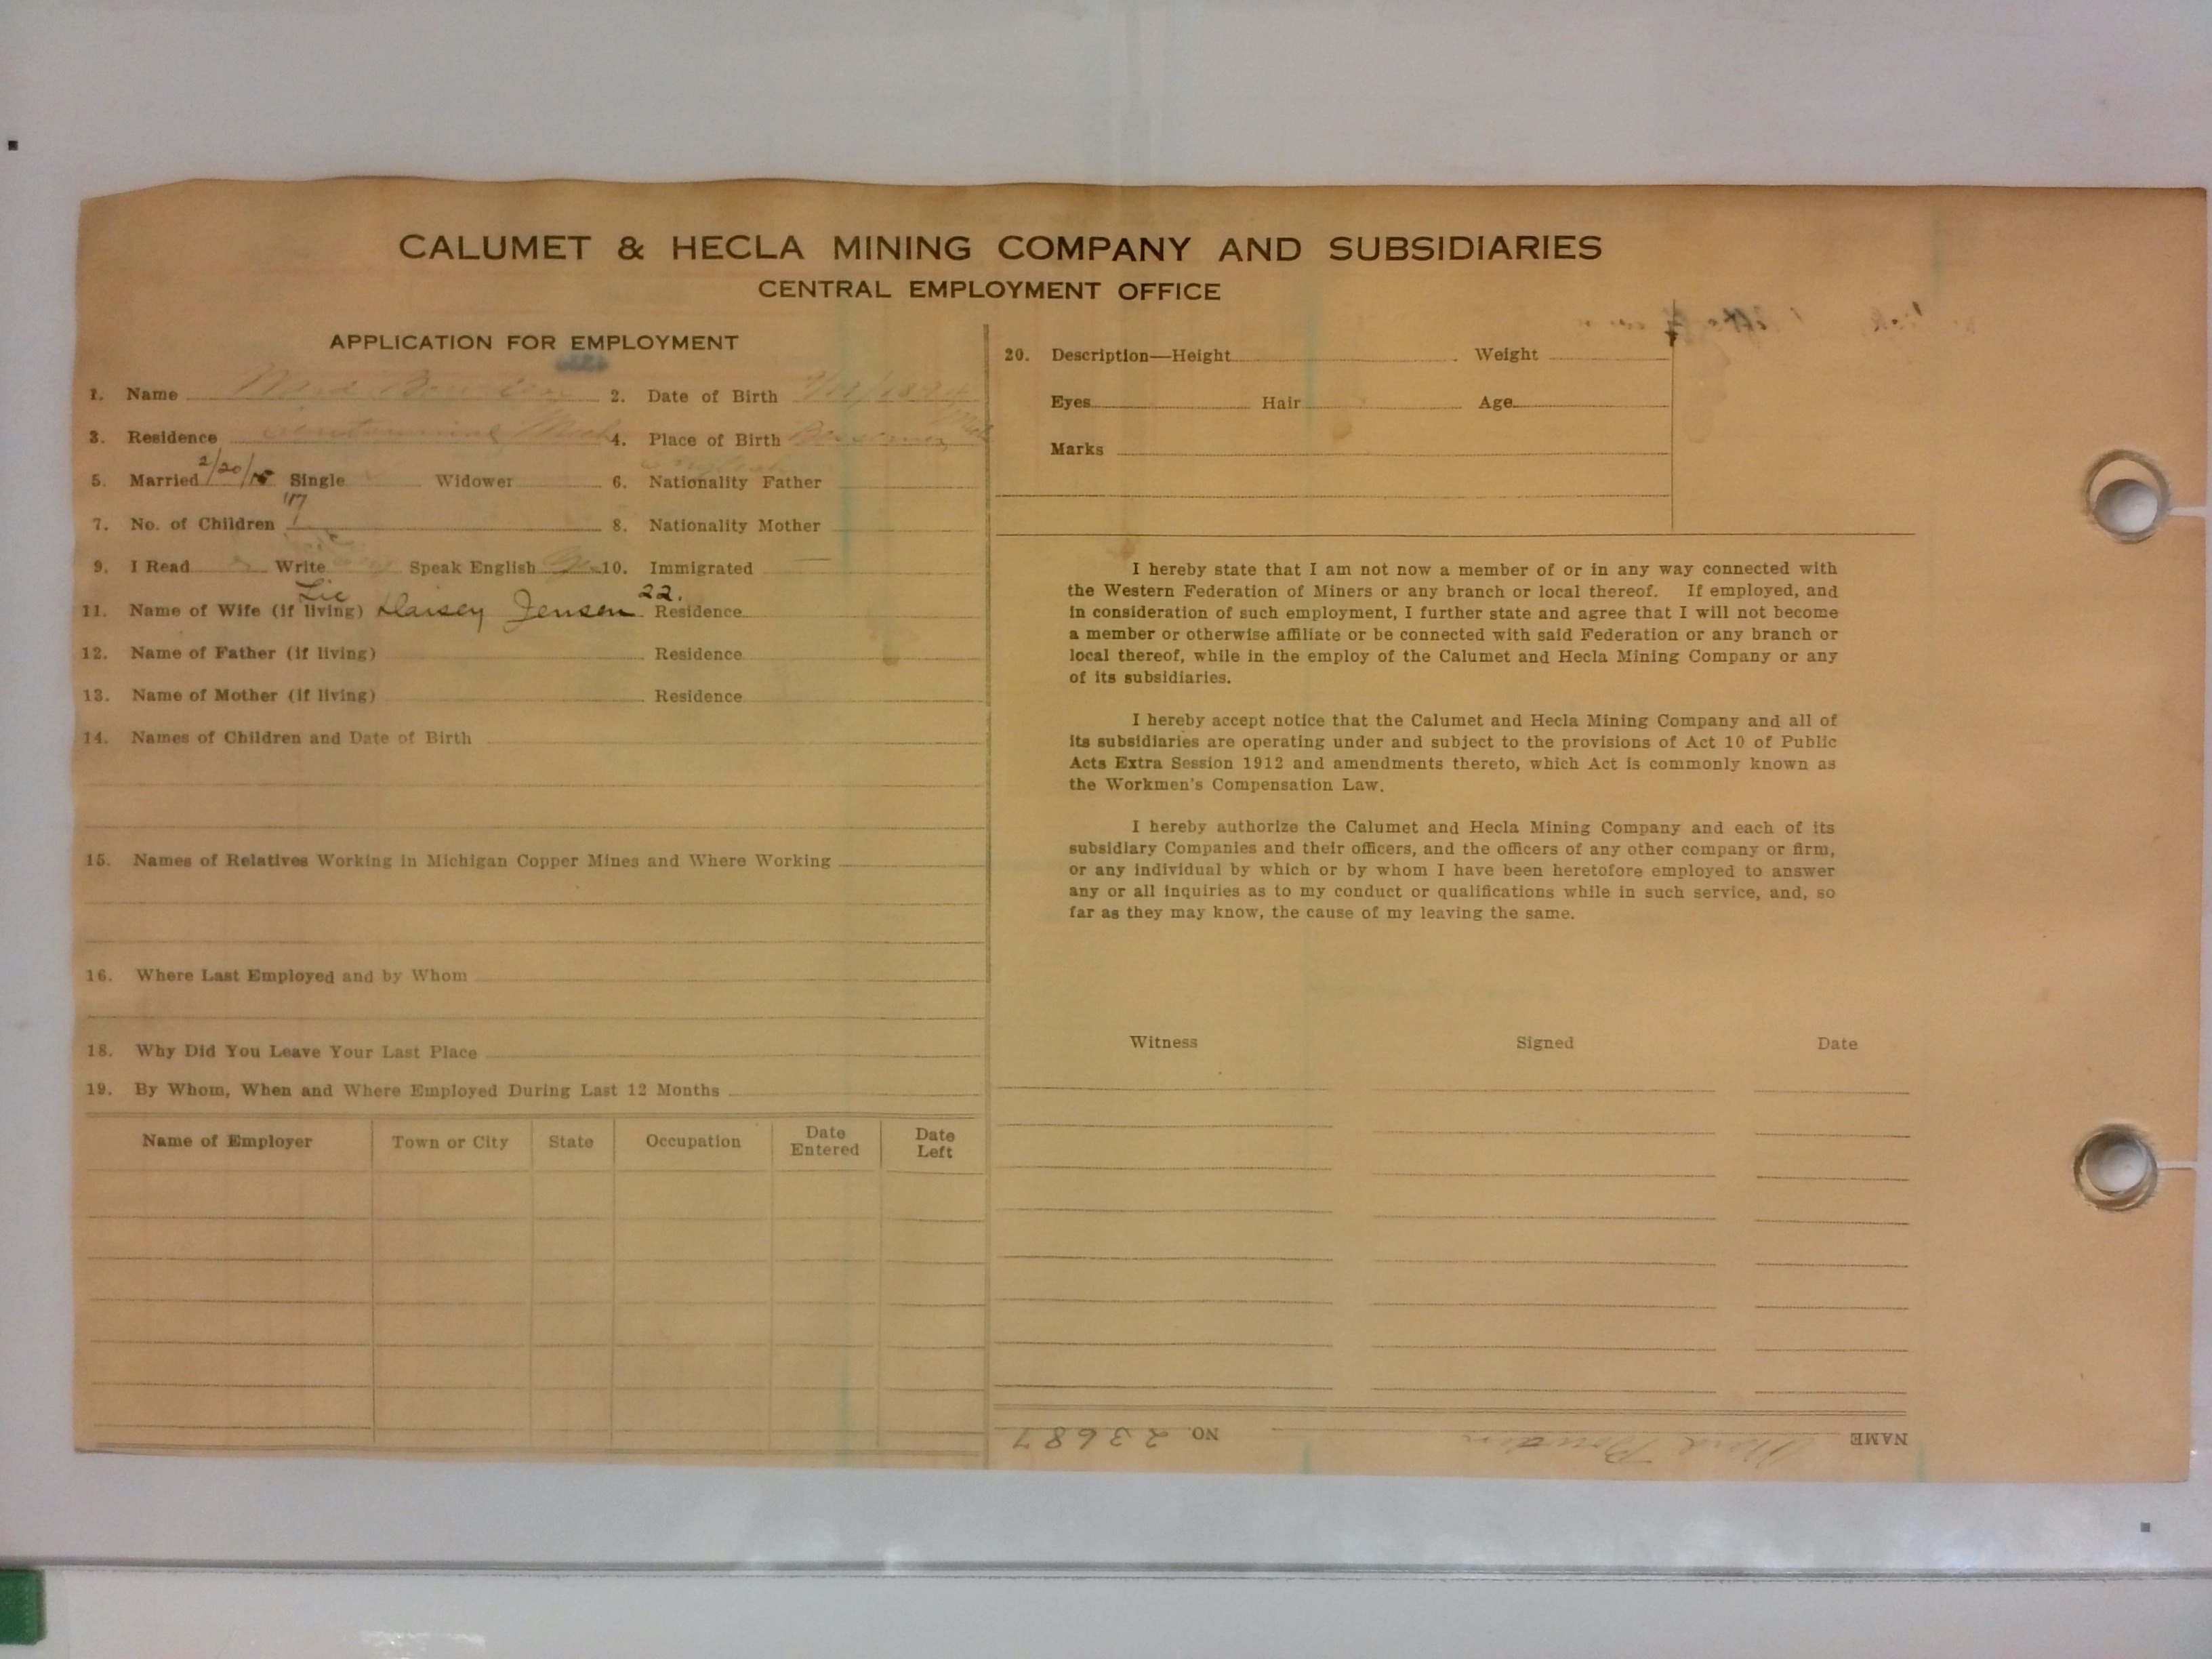 CALUMET & HECLA MINING COMPANY AND SUBSIDIARIES
CENTRAL EMPLOYMENT OFFICE
APPLICATION FOR EMPLOYMENT
1. Name 2. Date of Birth
3. Residence Mich 4. Place of Birth
5. Married 2/20/ Single Widower 6. Nationality Father
'17
7. No. of Children 8. Nationality Mother
9. I Read Write Speak English 10. Immigrated
Lic 22.
11. Name of Wife (if living) Daisey Jensen Residence
12. Name of Father (if living) Residence
13. Name of Mother (if living) Residence
14. Names of Children and Date of Birth
15. Names of Relatives Working in Michigan Copper Mines and Where Working
16. Where Last Employed and by Whom
18. Why Did You Leave Your Last Place
19. By Whom, When and Where Employed During Last 12 Months
Name of Employer Town or City State Occupation Date Entered Date Left
20. Description—Height Weight
Eyes Hair Age
Marks
I hereby state that I am not now a member of or in any way connected with
the Western Federation of Miners or any branch or local thereof. If employed, and
in consideration of such employment, I further state and agree that I will not become
a member or otherwise affiliate or be connected with said Federation or any branch or
local thereof, while in the employ of the Calumet and Hecla Mining Company or any
of its subsidiaries.
I hereby accept notice that the Calumet and Hecla Mining Company and all of
its subsidiaries are operating under and subject to the provisions of Act 10 of Public
Acts Extra Session 1912 and amendments thereto, which Act is commonly known as
the Workmen's Compensation Law.
I hereby authorize the Calumet and Hecla Mining Company and each of its
subsidiary Companies and their officers, and the officers of any other company or firm,
or any individual by which or by whom I have been heretofore employed to answer
any or all inquiries as to my conduct or qualifications while in such service, and, so
far as they may know, the cause of my leaving the same.
Witness Signed Date
NAME NO. 23687